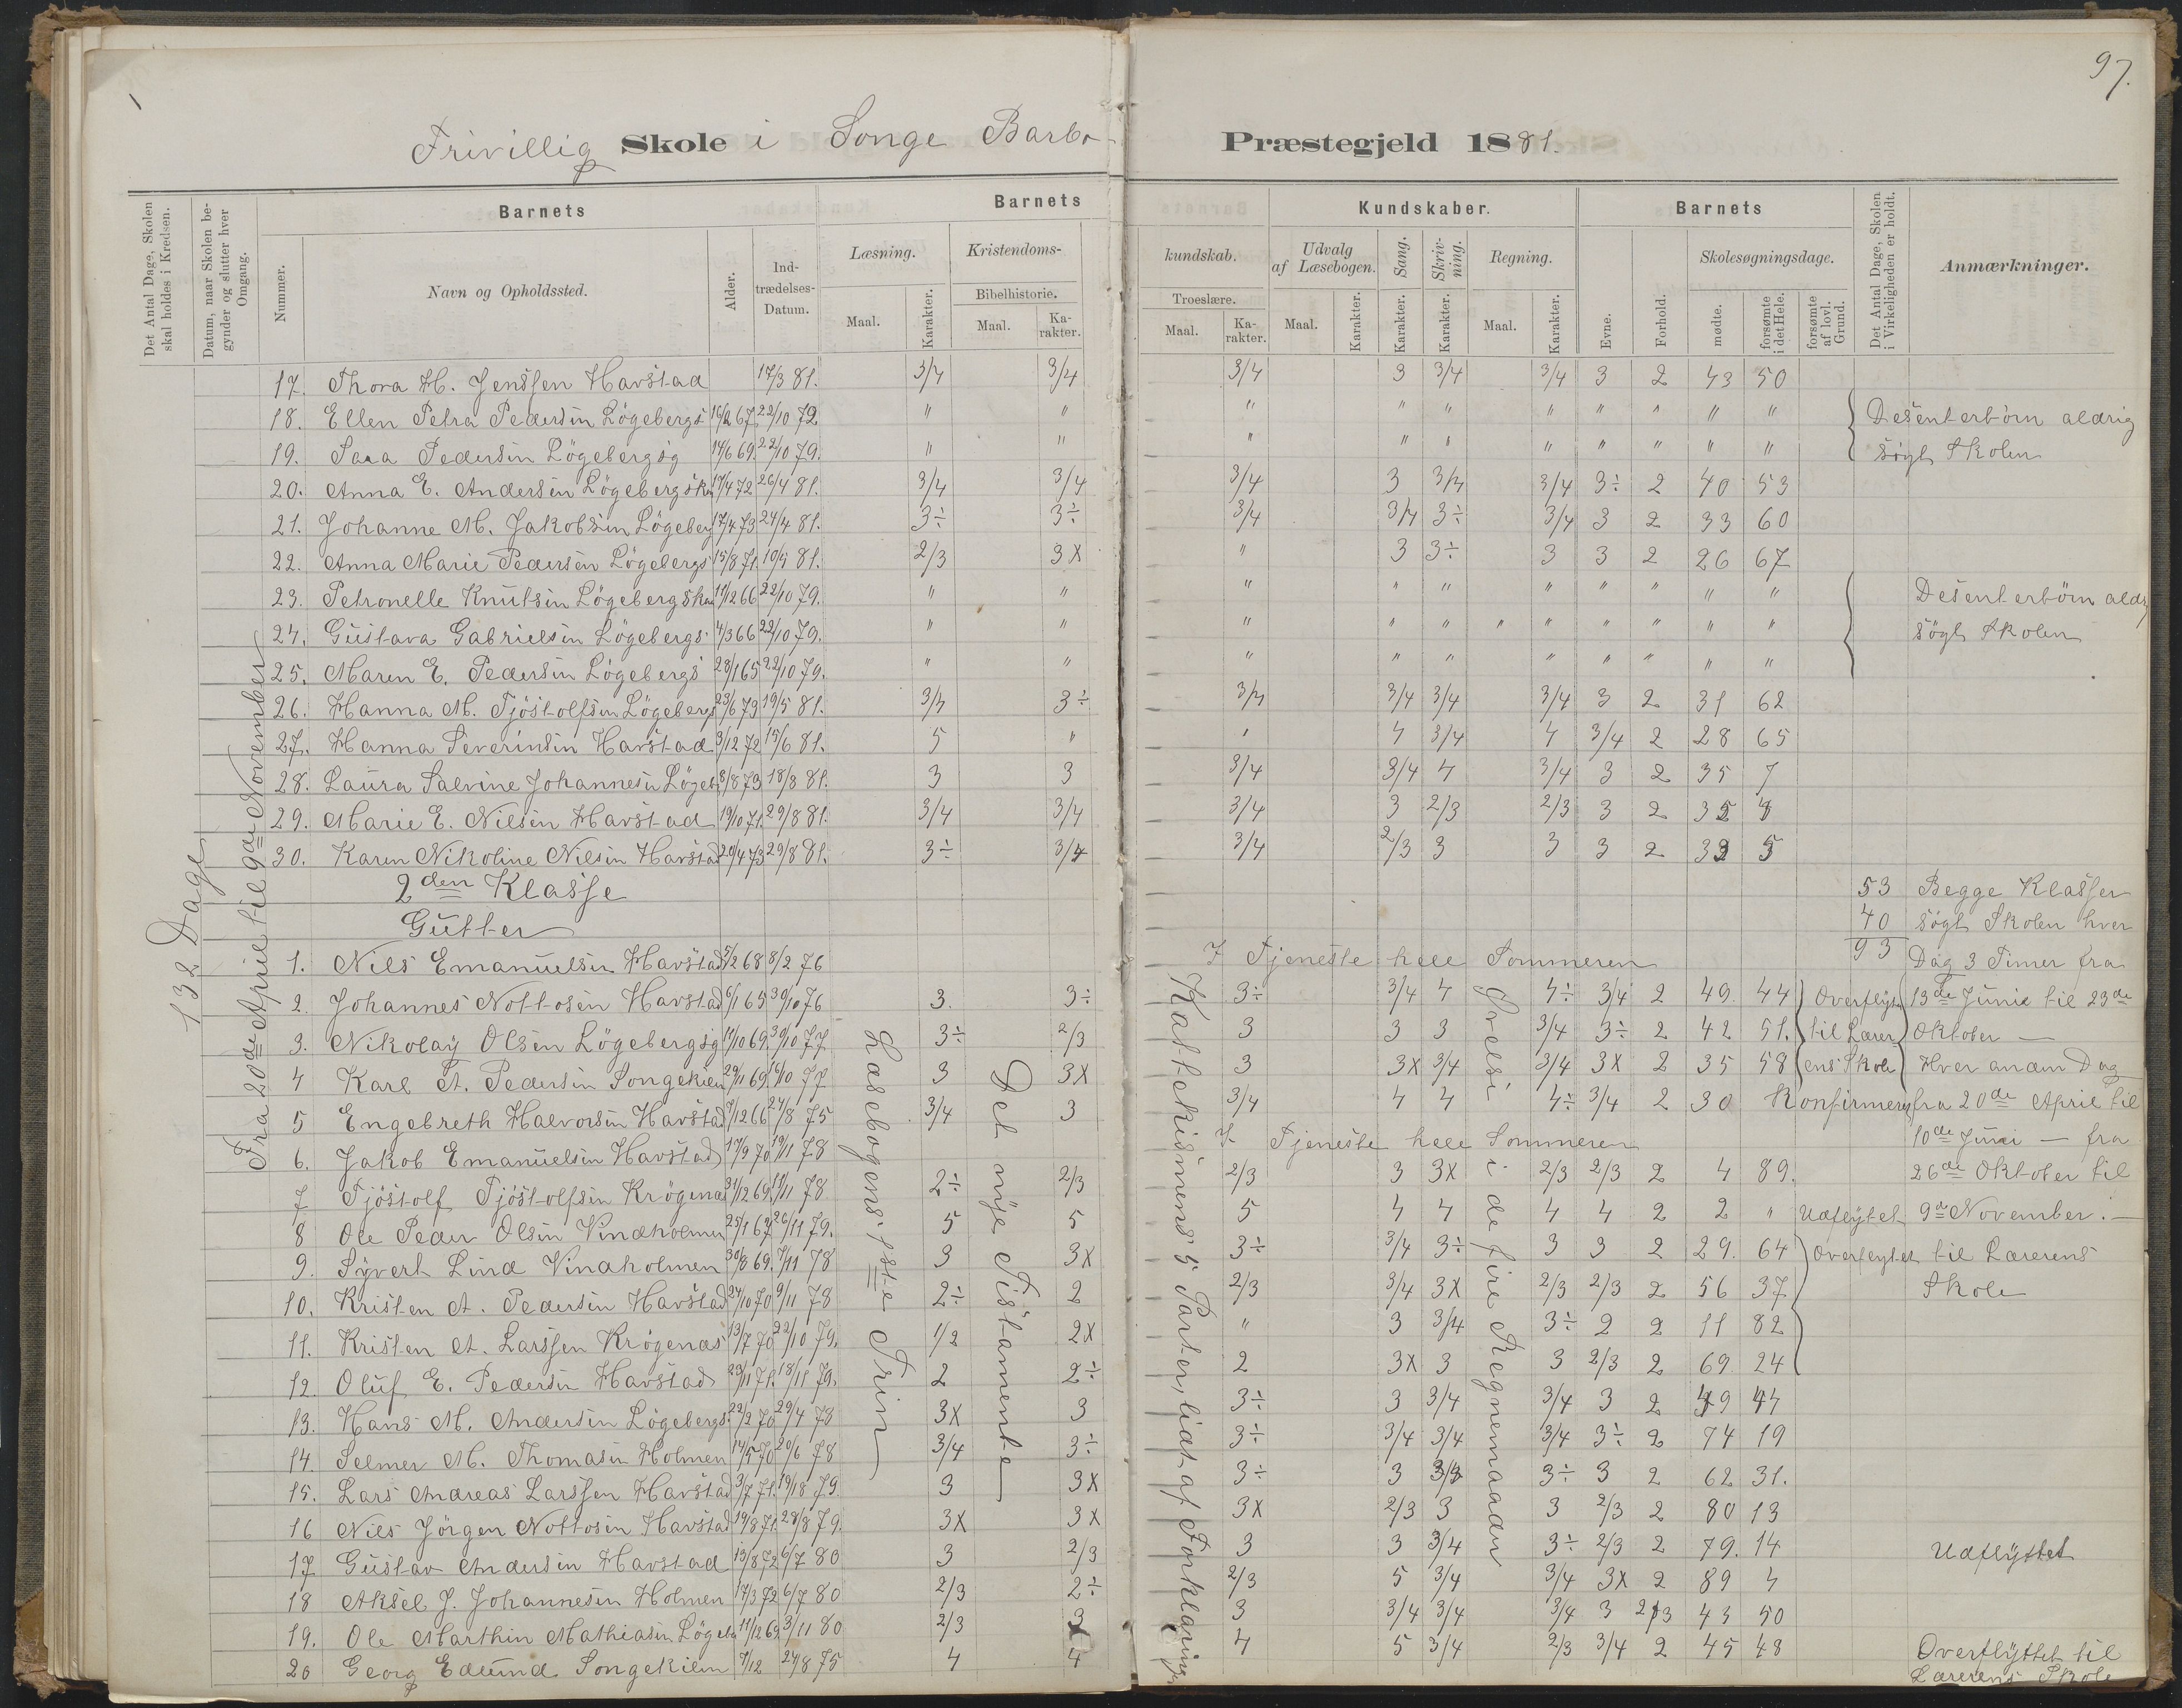 97.
Frivillig Skole i Songe Barbo Præstegjeld 1881.
Det Antal Dage, Skolen skal holdes i Kredsen.
Datum, naar Skolen begynder og slutter hver Omgang.
Barnets
Nummer.
Navn og Opholdssted.
Alder.
Indtrædelses-Datum.
Barnets Kundskaber.
Læsning.
Maal.
Karakter.
Kristendomskundskab.
Bibelhistorie.
Maal.
Karakter.
Troeslære.
Maal.
Karakter.
Udvalg af Læsebogen.
Maal.
Karakter.
Sang.
Karakter.
Skrivning.
Karakter.
Regning.
Maal.
Karakter.
Barnets
Evne.
Forhold.
Skolesøgningsdage.
mødte.
forsømte i det Hele.
forsømte af lovl. Grund.
Det Antal Dage, Skolen i Virkeligheden er holdt.
Anmærkninger.
132 Dage
Fra 20de April til 9de November
17. Thora H. Jenssen Havstad 17/3 81. 3/4 3/4 3/4 3 3/4 3/4 3 2 43 50
18. Ellen Petra Pedersen Lögebergs 16/2 67 22/10 79 " " " " " " " " " " Desenterbörn aldrig
19. Sara Pedersen Lögebergsg 14/6 69. 22/10 79. " " " " " " " " " " sögt Skolen
20. Anna E. Andersen Lögebergsk 17/4 72 26/4 81. 3/4 3/4 3/4 3 3/4 3/4 3÷ 2 40 53
21. Johanne M. Jakobsen Lögeberg 17/4 73 24/4 81. 3÷ 3÷ 3/4 3/4 3÷ 3/4 3 2 33 60
22. Anna Marie Pedersen Lögebergs 15/8 71 10/5 81. 2/3 3X " 3 3÷ 3 3 2 26 67
23. Petronelle Knutsen Lögebergska 17/12 66 22/10 79. " " " " " " " " " " Desenterbörn aldr
24. Gustava Gabrielsen Lögebergs 4/3 66 22/10 79. " " " " " " " " " " " sögt Skolen
25. Maren E. Pedersen Lögebergs 28/1 65 22/10 79. " " " " " " " " " "
26. Hanna M. Tjöstolfsen Lögebergs 23/6 73 19/5 81. 3/4 3÷ 3/4 3/4 3/4 3/4 3 2 31 62
27. Hanna Severinsen Havstad 3/12 72 15/6 81. 5 " " 4 3/4 4 3/4 2 28 65
28. Laura Salvine Johannesen Lögeb 8/8 73 18/8 81. 3 3 3/4 3/4 4 3/4 3 2 35 7
29. Marie E. Nilsen Havstad 19/10 71. 29/8 81. 3/4 3/4 3/4 3 2/3 2/3 3 2
30. Karen Nikoline Nilsen Havstad 20/4 73 29/8 81. 3÷ 3/4 3/4 2/3 3 3 3 2
2den Klasse
Gutter
53 Begge Klasser
40 sögt Skolen hver
93 Dag 3 Timer fra
13de Juni til 23de
Oktober —
Hver anden Dag
fra 20de April til
10de Juni — fra
26de Oktober til
9de November. —
1. Nils Emanuelsen Havstad 5/2 68 8/2 76 I Tjeneste hele Sommeren
2. Johannes Nottosen Havstad 6/1 65 30/10 76 3. 3÷ 3÷ 3/4 4 4÷ 3/4 2 49. 44 Overflyt
3. Nikolay Olsen Lögebergsg 11/10 69 30/10 77 3÷ 2/3 3 3 3 3/4 3÷ 2 42 51. til Lærer
4 Karl A. Pedersen Songekilen 29/11 69 16/10 77 3 3X 3 3X 3/4 3/4 3X 2 35 58 ens Skole
5 Engebreth Halvorsen Havstad 9/12 66 24/8 75 3/4 3 3/4 4 4 4÷ 3/4 2 30 Konfirmeres
6. Jakob Emanuelsen Havstad 17/9 70 19/11 78 I Tjeneste hele Sommeren
7 Tjöstolf Tjöstolfsen Krögenæs 31/12 69 11/11 78 2÷ 2/3 2/3 3 3X 2/3 2/3 2 4 89.
8 Ole Peder Olsen Vindholmen 25/1 67 26/11 79. 5 5 5 4 4 4 4 2 2 " Udflyttet
9. Syvert Lind Vindholmen 30/8 69. 7/11 78 3 3X 3÷ 3/4 3÷ 3 3 2 29. 64 Overflyttet til Lærerens
10. Kristen A. Pedersen Havstad 24/10 70 9/11 78 2÷ 2 2/3 3/4 3X 2/3 2/3 2 56 37 Skole
11. Kristen A. Larssen Krögenæs 13/7 70 22/10 79. 1/2 2X " 3 3/4 3÷ 2 2 11 82
12. Oluf E. Pedersen Havstad 29/11 71. 18/11 79. 2 2÷ 2 3X 3 3 2/3 2 69. 24
13. Hans M. Andersen Lögebergs 22/2 70 29/4 78 3X 3 3÷ 3 3/4 3/4 3 2 49 44
14. Selmer M. Thomasen Holmen 14/5 70 20/6 78 3/4 3÷ 3÷ 3/4 3/4 3/4 3÷ 2 74 19
15. Lars Andreas Larssen Havstad 3/7 71. 19/18 79. 3 3X 3÷ 3 3/3 3÷ 3 2 62 31.
16 Nils Jörgen Nottosen Havstad 19/8 71. 28/8 79. 3X 3X 3X 2/3 3 3 2/3 2 80 13
17. Gustav Andersen Havstad 13/8 72 6/7 80 3 2/3 3 3 3/4 3÷ 2/3 2 79. 14 Udflyttet
18 Aksel J. Johannesen Holmen 17/3 72 6/7 80 2/3 2÷ 2/3 5 3/4 3/4 3X 2 89 4
19. Ole Marthin Mathiasen Lögeb 11/12 69 3/11 80 2/3 3 3 3/4 3/4 3/4 3 2/3 43 50
20 Georg Edvind Songekilen 7/12 24/8 75 4 4 4 5 3/4 2/3 3/4 2 45 48 Overflyttet til
Lærerens Skole
Læsebogens 1ste Trin
Det nye Tistamente
Kattekismens 5 Parter, lidt af Forklaringen
Øvelse i de fire Regnemaader